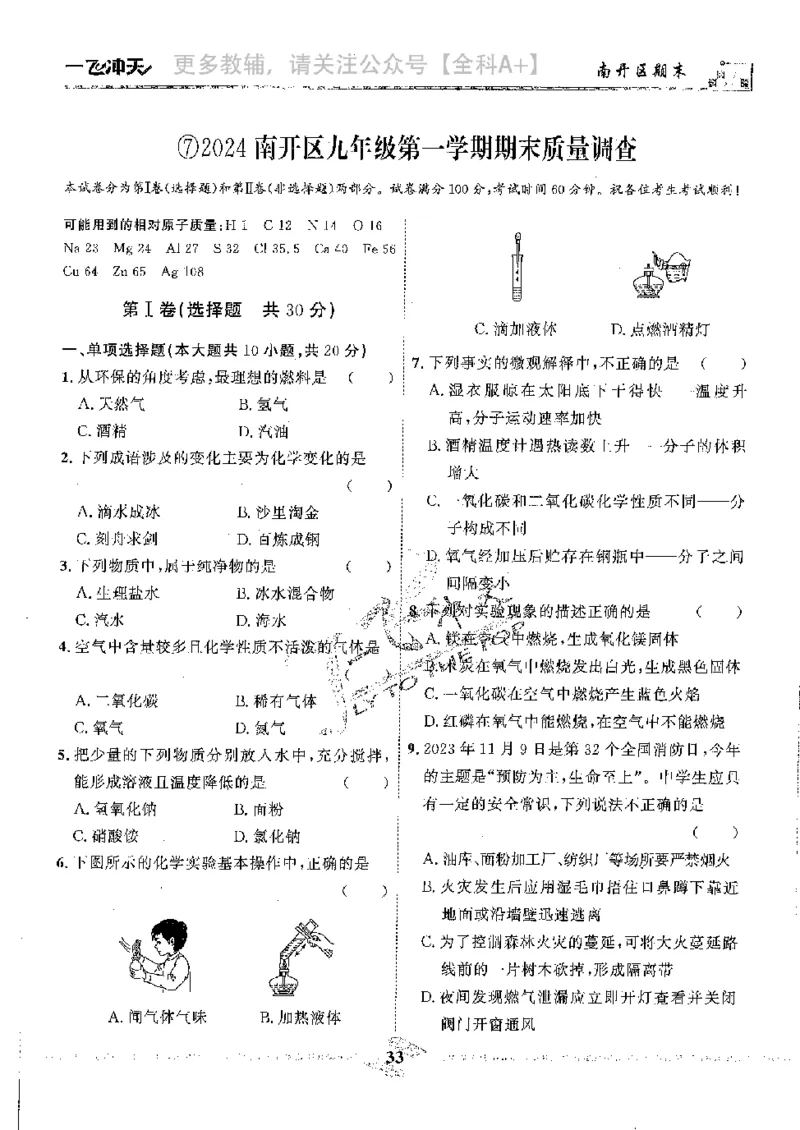 一飞冲天
更多教辅，请关注公众号【全科A+】
南开区期末
⑦2024南开区九年级第一学期期末质量调查
本试卷分为第Ⅰ卷(选择题)和第Ⅱ卷(非选择题)两部分。试卷满分100分,考试时间60分钟。祝各位考生考试顺利!
可能用到的相对原子质量:H 1 C 12 N 14 O 16
Na 23 Mg 24 Al 27 S 32 Cl 35.5 Ca 40 Fe 56
Cu 64 Zn 65 Ag 108
第Ⅰ卷(选择题 共30分)
一、单项选择题(本大题共10小题,共20分)
1.从环保的角度考虑,最理想的燃料是 ( )
A.天然气 B.氢气
C.酒精 D.汽油
2.下列成语涉及的变化主要为化学变化的是
( )
A.滴水成冰 B.沙里淘金
C.刻舟求剑 D.百炼成钢
3.下列物质中,属于纯净物的是 ( )
A.生理盐水 B.冰水混合物
C.汽水 D.海水
4.空气中含量较多且化学性质不活泼的气体是
A.二氧化碳 B.稀有气体
C.氧气 D.氮气
5.把少量的下列物质分别放入水中,充分搅拌,
能形成溶液且温度降低的是 ( )
A.氢氧化钠 B.面粉
C.硝酸铵 D.氯化钠
6.下图所示的化学实验基本操作中,正确的是
( )
A.闻气体气味 B.加热液体
C.滴加液体 D.点燃酒精灯
7.下列事实的微观解释中,不正确的是 ( )
A.湿衣服晾在太阳底下干得快——温度升
高,分子运动速率加快
B.酒精温度计遇热读数上升——分子的体积
增大
C.一氧化碳和二氧化碳化学性质不同——分
子构成不同
D.氧气经加压后贮存在钢瓶中——分子之间
间隔变小
8.下列对实验现象的描述正确的是 ( )
A.镁在空气中燃烧,生成氧化镁固体
B.木炭在氧气中燃烧发出白光,生成黑色固体
C.一氧化碳在空气中燃烧产生蓝色火焰
D.红磷在氧气中能燃烧,在空气中不能燃烧
9.2023年11月9日是第32个全国消防日,今年
的主题是“预防为主,生命至上”。中学生应具
有一定的安全常识,下列说法不正确的是
( )
A.油库、面粉加工厂、纺织厂等场所要严禁烟火
B.火灾发生后应用湿毛巾捂住口鼻蹲下靠近
地面或沿墙壁迅速逃离
C.为了控制森林火灾的蔓延,可将大火蔓延路
线前的一片树木砍掉,形成隔离带
D.夜间发现燃气泄漏应立即开灯查看并关闭
阀门开窗通风
33